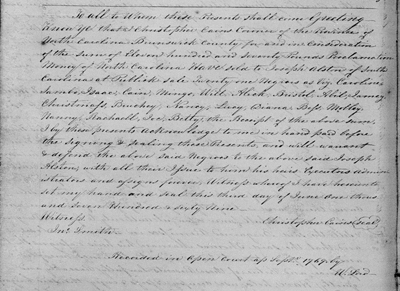 To all to Whom these Presents shall come Greeting
Know ye that I Christopher Cains Coroner of the Province of
North Carolina Brunswick County for and in Consideration
of the Sum of Eleven hundred and seventy Pounds Proclamation
Money of North Carolina Have sold to Joseph Alston of South
Carolina at Publick sale Twenty six Negroes as by Caroline
Jambo, Isaac, Cain, Mingo, Will, Bristol, Abel, Jammy
Christmass, Buckey, Nancy, Lucy, Diana, Bess, Molley
Nanny, Rachaell, Betty, the Receipt of the above Sum
I by these presents Acknowledge to me in hand paid before
the Signing & Sealing these Presents, and will warrant
& defend the above said Negroes to the above said Joseph
Alston, with all there Issue to him his heirs Executors Admin
istrators and assigns forever, Witness whereof I have hereunto
set my hand and Seal this third day of June One thous
and Seven Hundred & sixty Nine
Christopher Cains (Seal)
Witness
Jno. Smith
Recorded in Open Court Sept. 1769 by